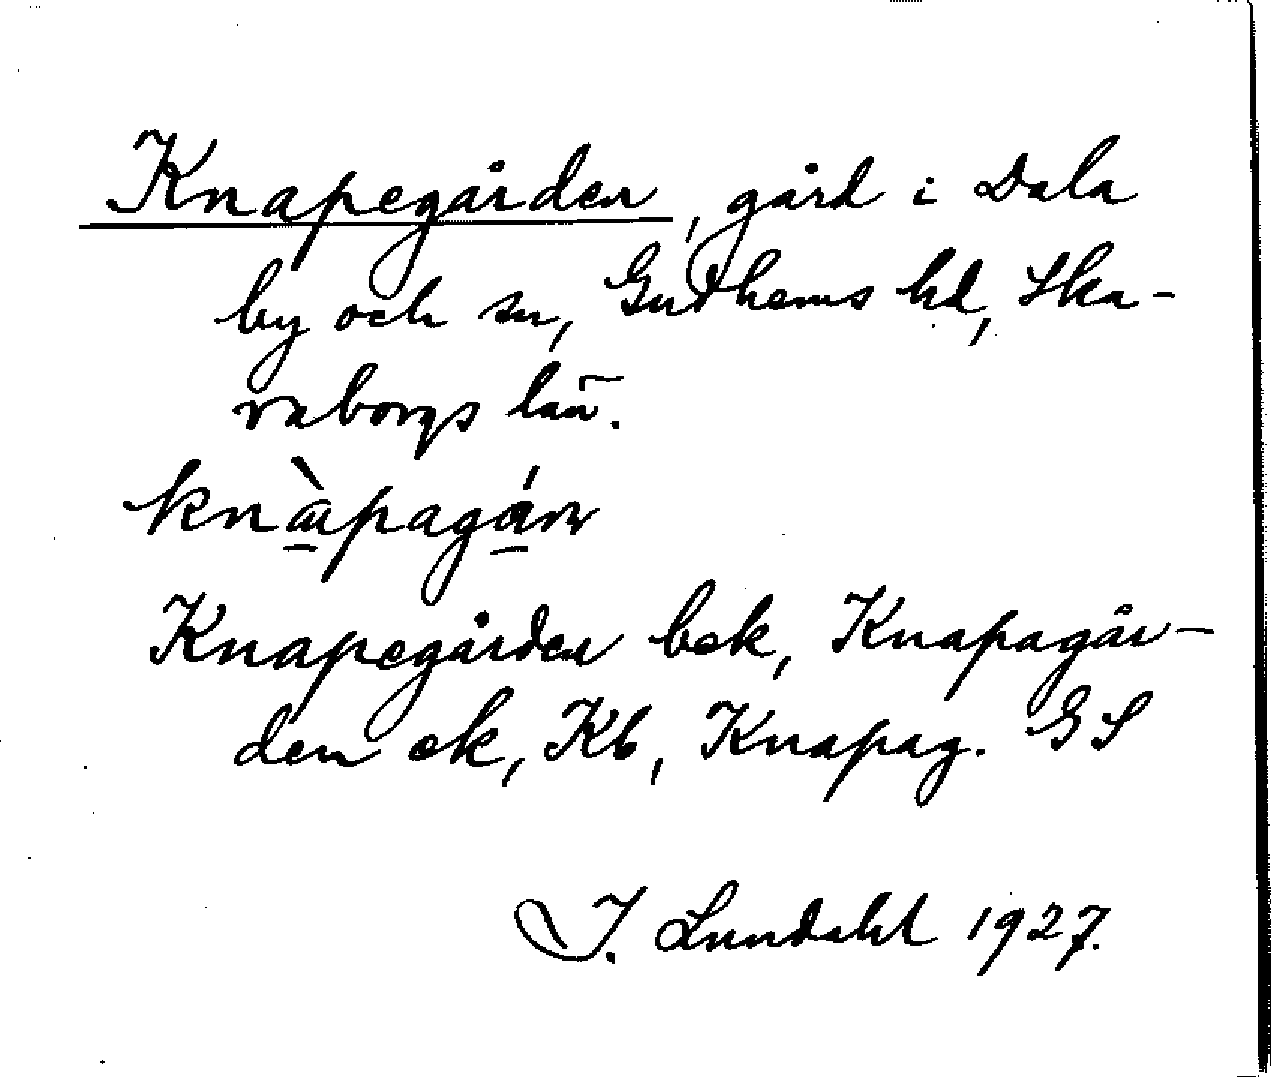 Knapegården, gård i Dala
by och sn, Gudhems hd, Ska-
raborgs län.
knàpagánr
Knapegården bek, Knapagår-
den ek, Kb, Knapag. GS
I. Lundahl 1927.